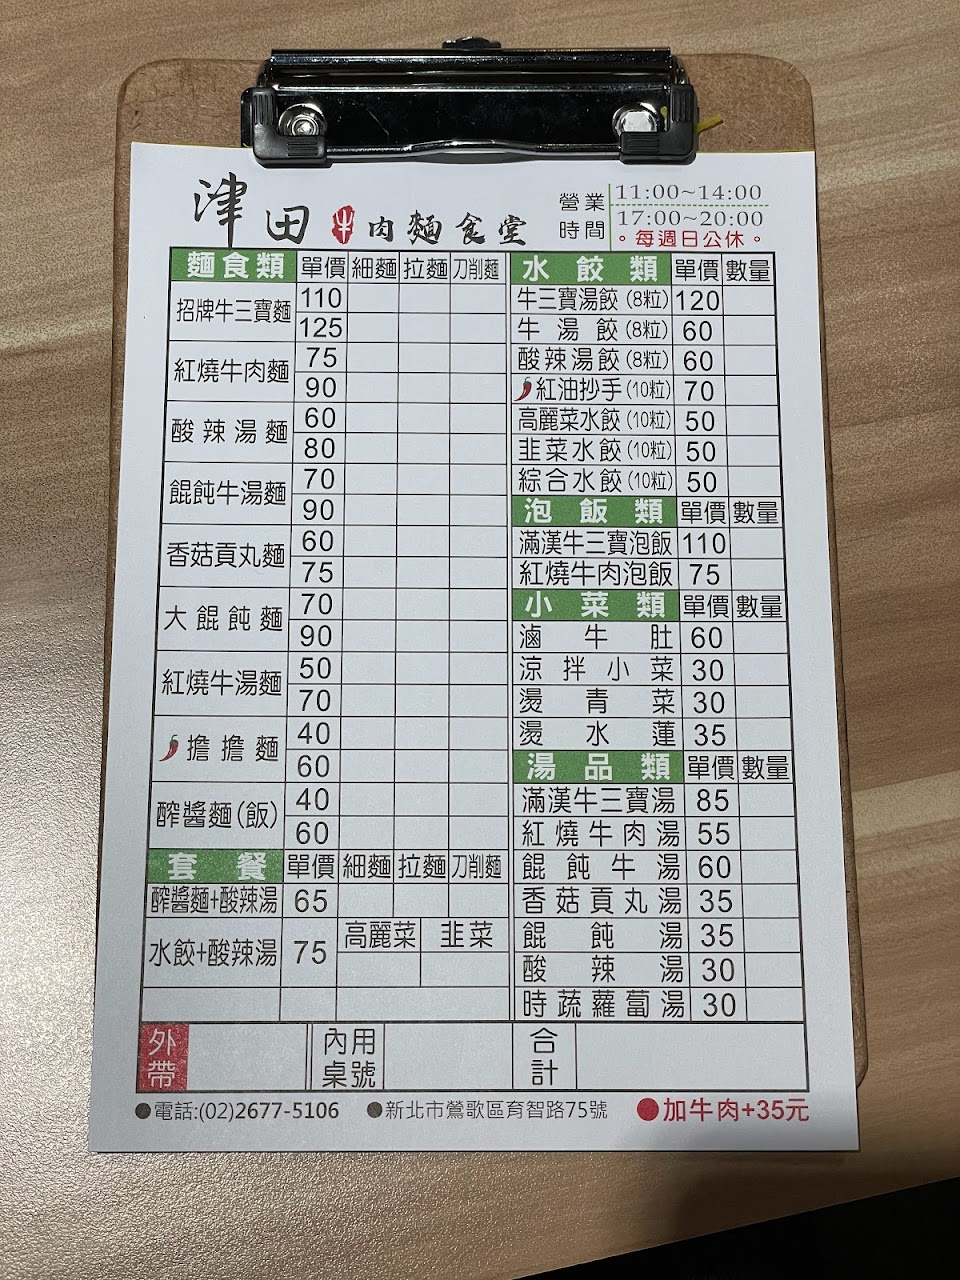 津田牛肉麵食堂
營業時間
11:00~14:00
17:00~20:00
。每週日公休。
麵食類 單價 細麵 拉麵 刀削麵
招牌牛三寶麵 110
125
紅燒牛肉麵 75
90
酸辣湯麵 60
80
餛飩牛湯麵 70
90
香菇貢丸麵 60
75
大餛飩麵 70
90
紅燒牛湯麵 50
70
擔擔麵 40
60
醡醬麵(飯) 40
60
套餐 單價 細麵 拉麵 刀削麵
醡醬麵+酸辣湯 65
水餃+酸辣湯 75 高麗菜 韭菜
水餃類 單價 數量
牛三寶湯餃(8粒) 120
牛湯餃(8粒) 60
酸辣湯餃(8粒) 60
紅油抄手(10粒) 70
高麗菜水餃(10粒) 50
韭菜水餃(10粒) 50
綜合水餃(10粒) 50
泡飯類 單價 數量
滿漢牛三寶泡飯 110
紅燒牛肉泡飯 75
小菜類 單價 數量
滷牛肚 60
涼拌小菜 30
燙青菜 30
燙水蓮 35
湯品類 單價 數量
滿漢牛三寶湯 85
紅燒牛肉湯 55
餛飩牛湯 60
香菇貢丸湯 35
餛飩湯 35
酸辣湯 30
時蔬蘿蔔湯 30
外帶 內用桌號 合計
●電話:(02)2677-5106 ●新北市鶯歌區育智路75號 ●加牛肉+35元